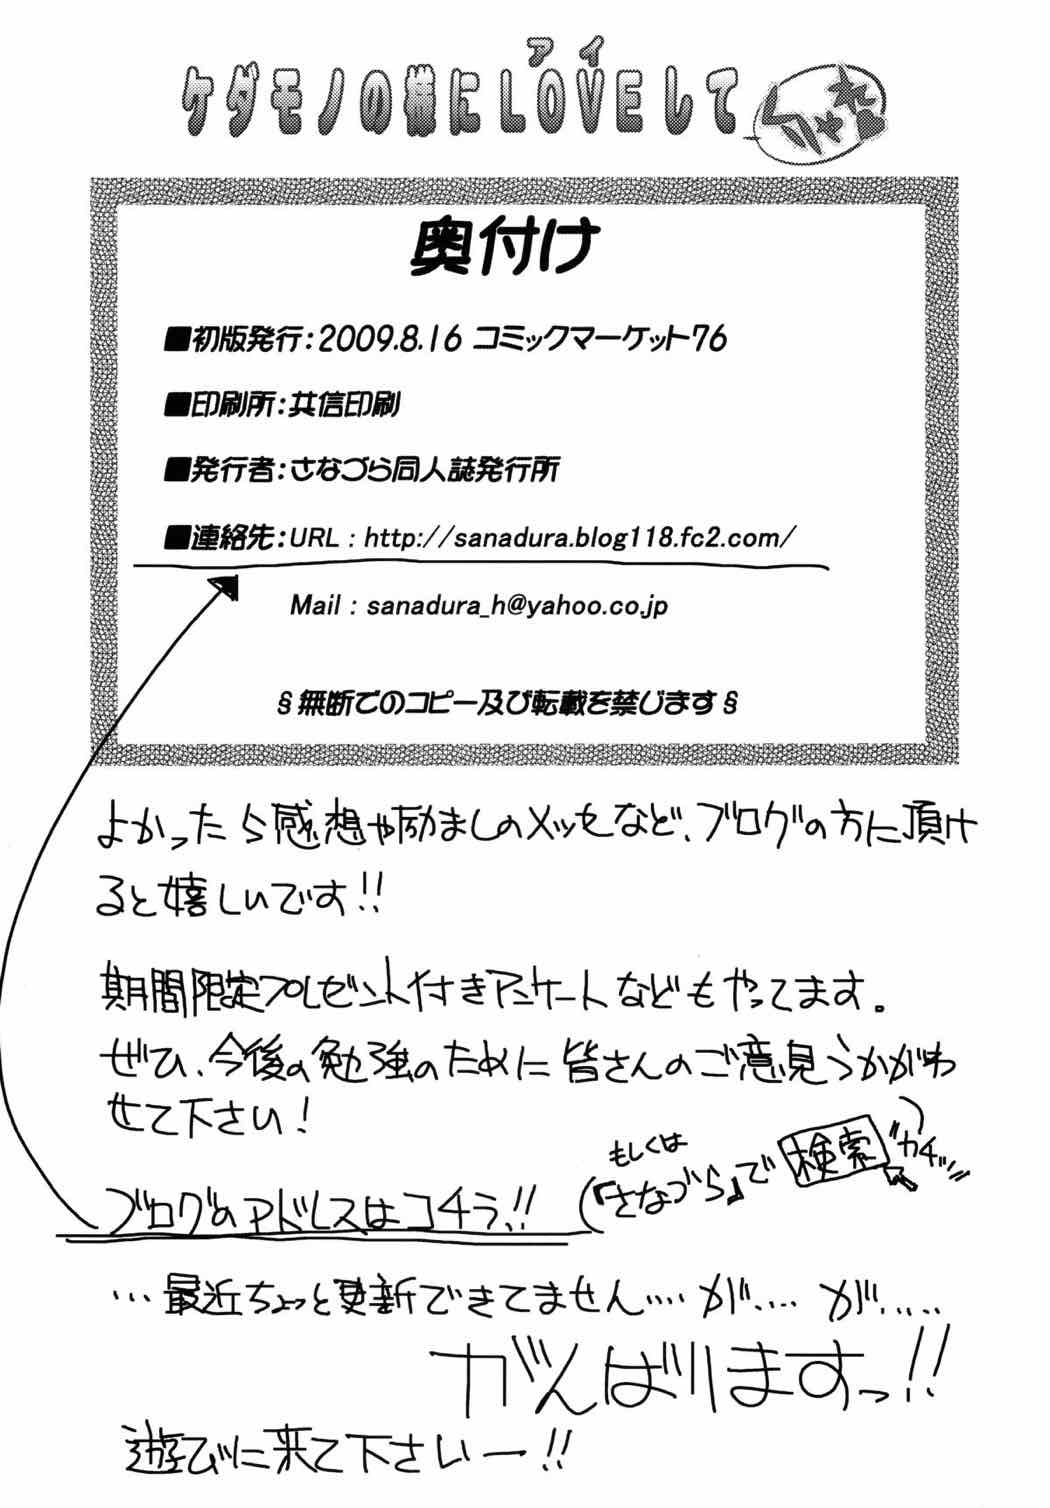 アイ
ケダモノの様にLOVEして
奥付け
■初版発行：2009.8.16 コミックマーケット76
■印刷所：共信印刷
■発行者：さなづら同人誌発行所
■連絡先：URL：http://sanadura.blog118.fc2.com/
Mail：sanadura_h@yahoo.co.jp
§無断でのコピー及び転載を禁じます§
よかったら感想や励ましのメッセなど、ブログの方に頂け
ると嬉しいです!!
期間限定プレゼント付きアンケートなどもやってます。
ぜひ、今後の勉強のために皆さんのご意見うかがわ
せて下さい!
ブログのアドレスはコチラ!!
(もしくは
『さなづら』で 検索 カチッ)
…最近ちょっと更新できてません…. が…. が…..
がんばりますっ!!
遊びに来て下さいー!!